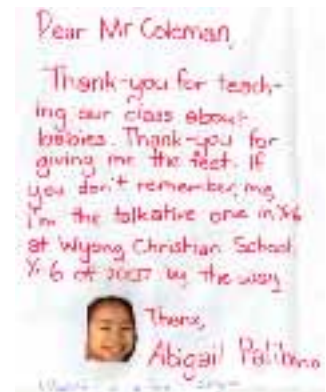 Dear Mr Coleman,
Thank-you for teach-
ing our class about
babies. Thank-you for
giving me the feet. If
you don't remember me,
I'm the talkative one in Yr6
at Wyong Christian School
Yr 6 of 2007 by the way
Thanx,
Abigail